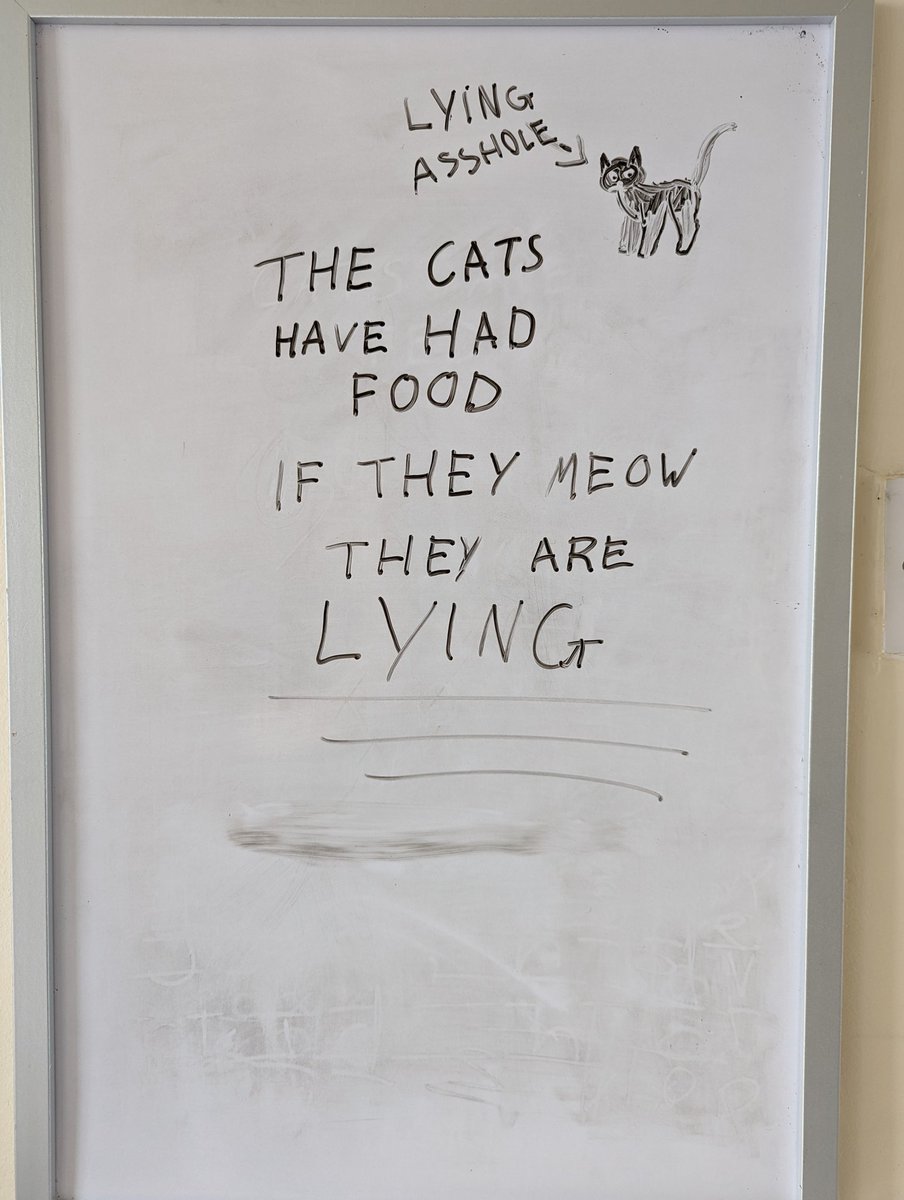 LYING
ASSHOLE
THE CATS
HAVE HAD
FOOD
IF THEY MEOW
THEY ARE
LYING